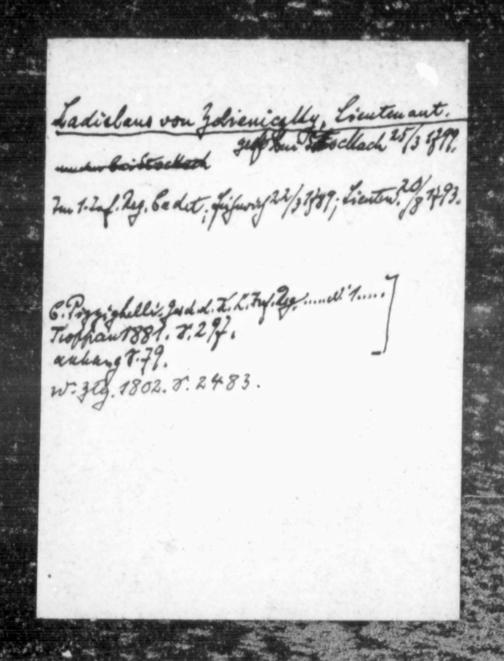 Ladislaus von Zdrieniczky, Lieutenant.
gef. bei Stockach 25/3 1799.
Im 1. Inf. Reg. Cadet; Fähnrich 22/3 1789; Lieuten. 20/8 1793.
C. Pizzighelli. Gesch. d. K. K. Inf. Reg. ..... N: 1 .....
Troppau 1881. S. 297.
Anhang S. 79.
W. Ztg. 1802. S. 2483.